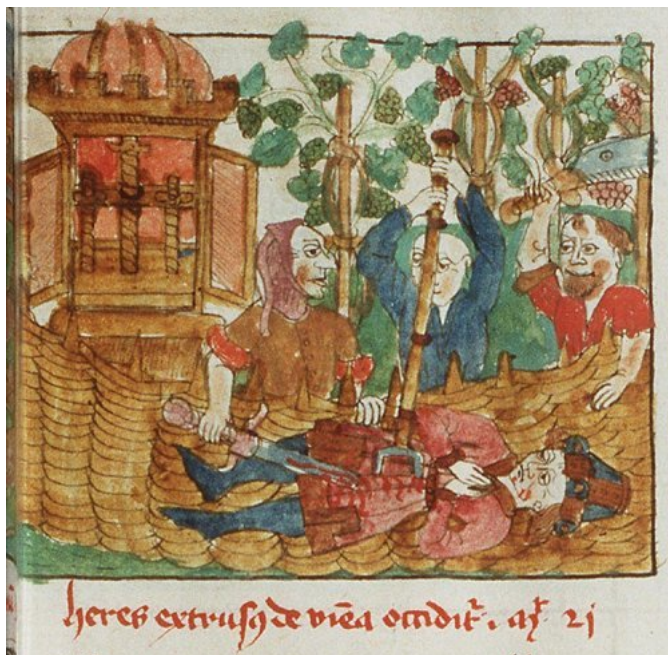 heres extrusꝯ de viēa occidit᷑. mͭ. 21